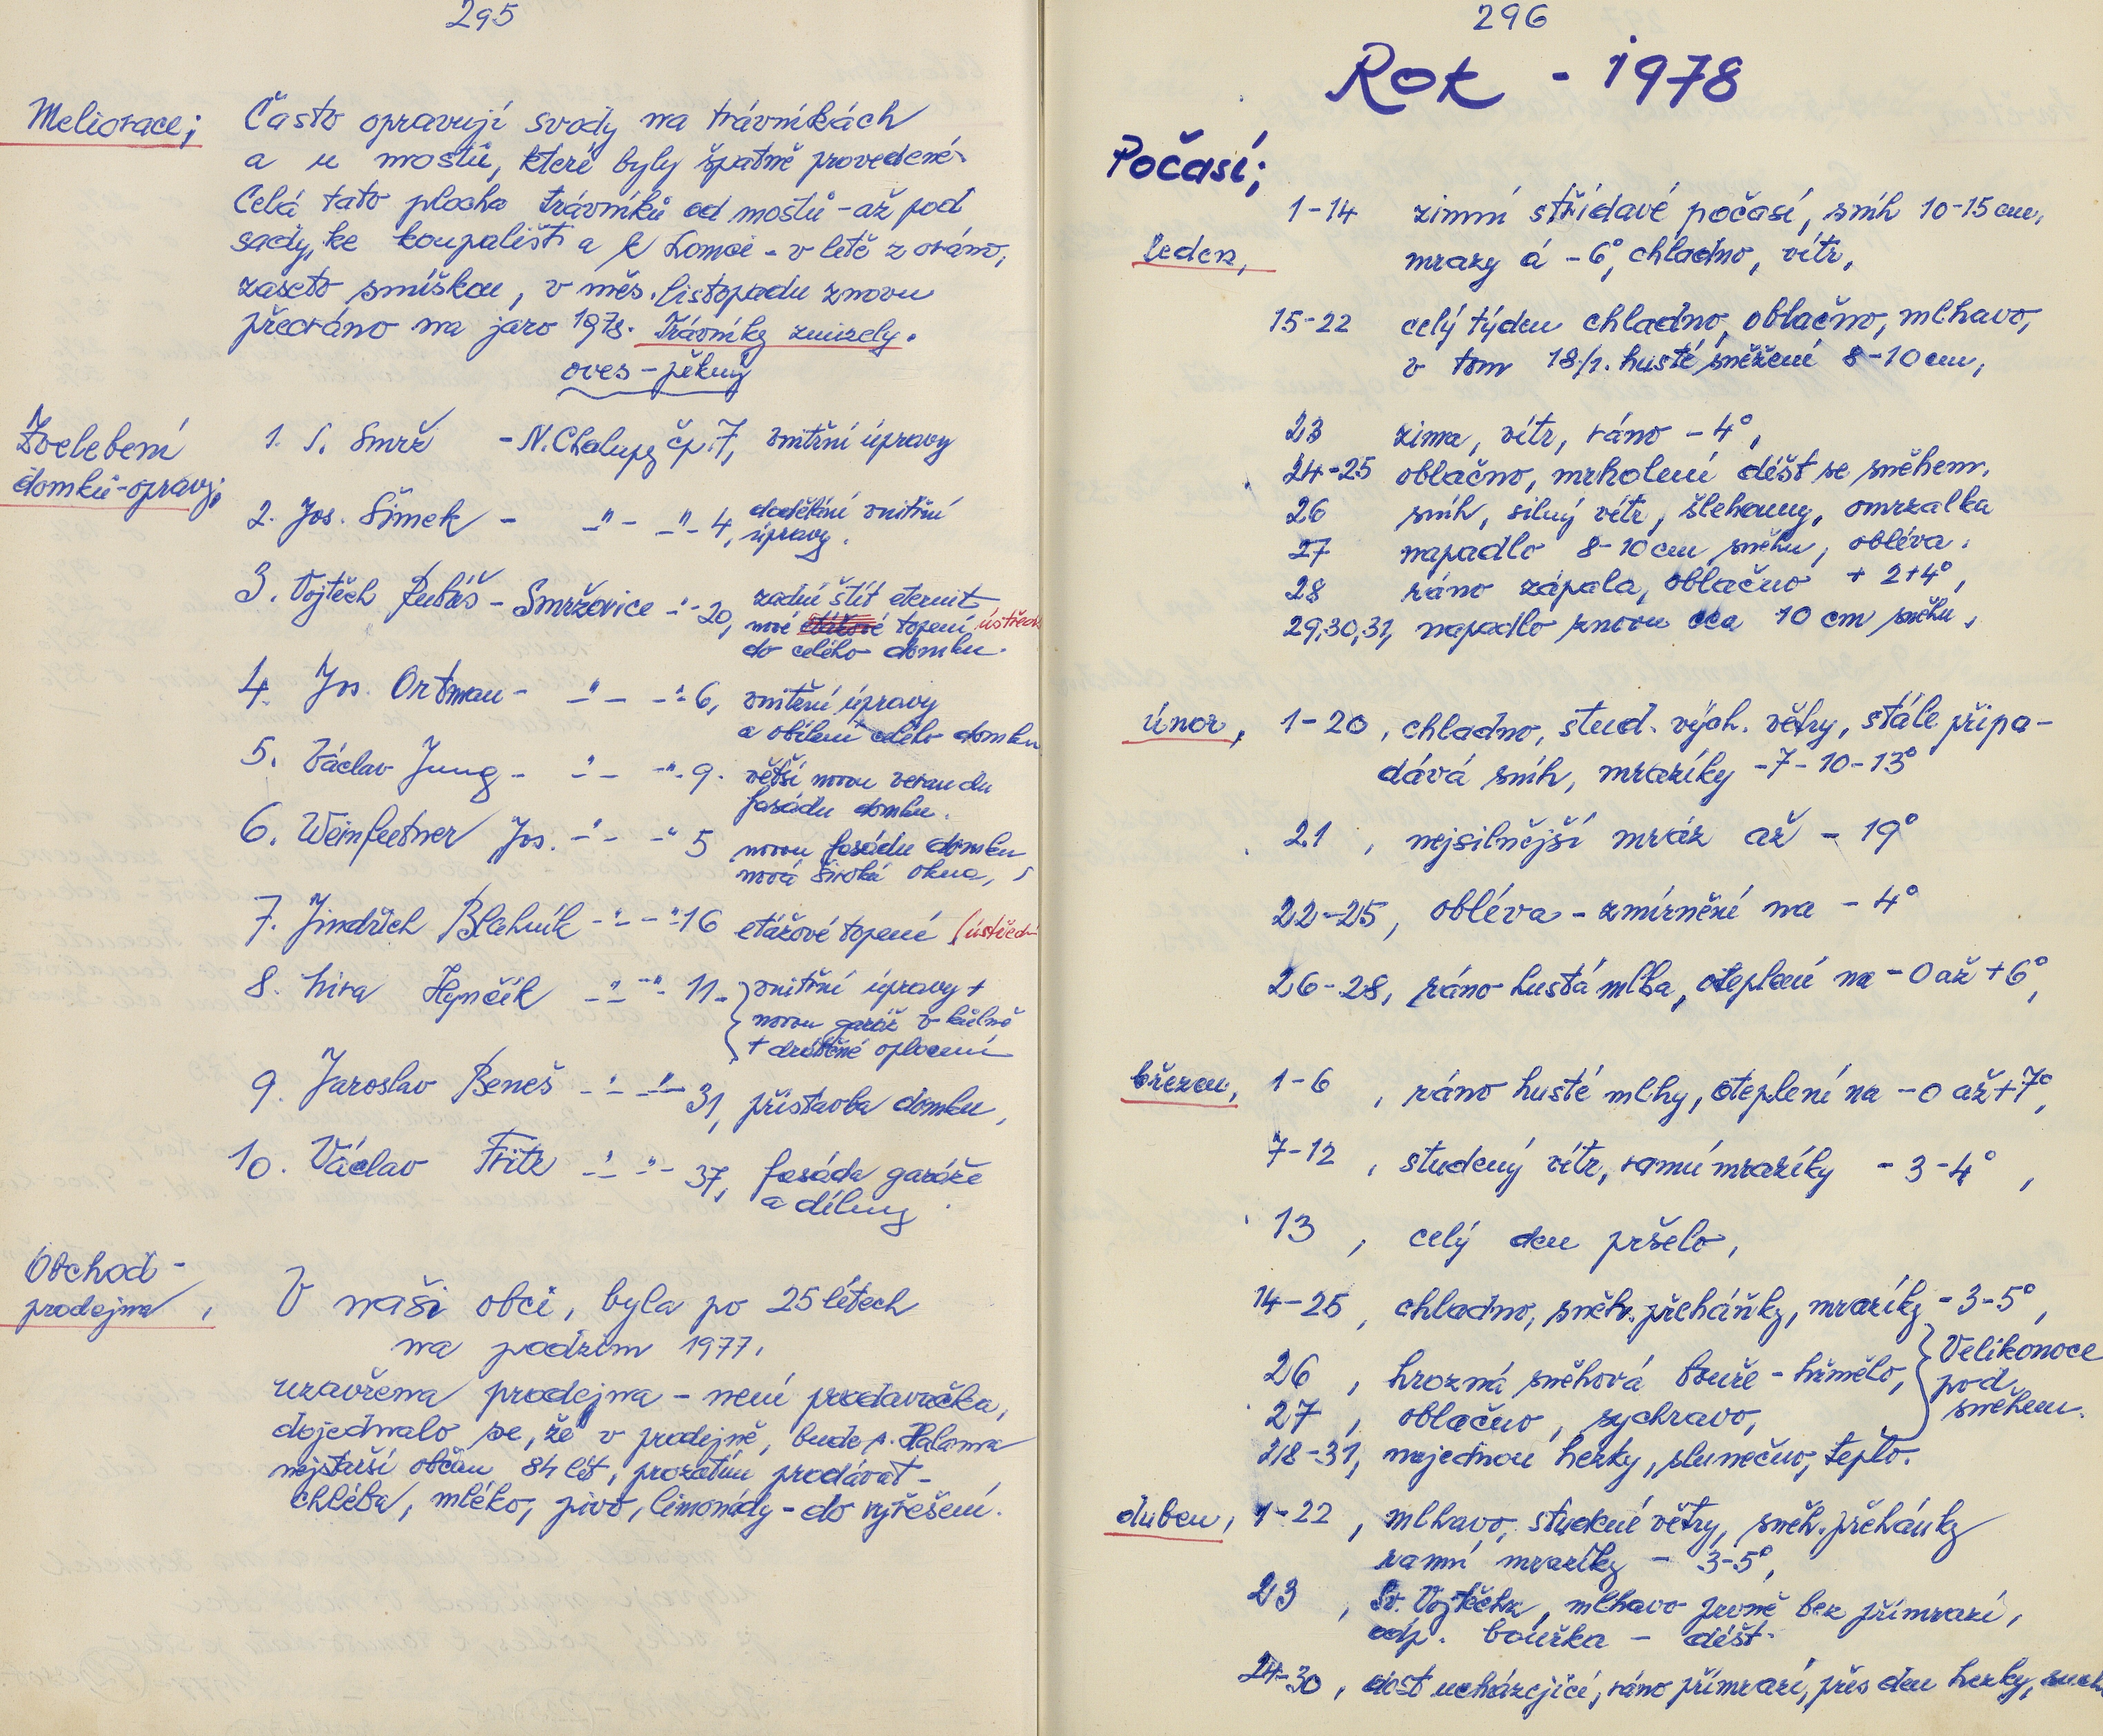 295
Meliorace;
Často opravují svody na trávníkách
a u mostů, které byly špatně provedené.
Celá tato plocha trávníků od mostů - až pod
sady, ke koupališti a k Lomci - v létě z oráno,
zaseto smíškou, v měs. listopadu znovu
přeoráno na jaro 1978. Trávníky zmizely.
oves - pěkný
Zvelebení
domků - opravy;
1. S. Smrž - N. Chalupy čp. 7, vnitřní úpravy
2. Jos. Šimek - -"- -"- 4, dodělání vnitřní
úpravy.
3. Vojtěch Lubáš - Smržovice -"- 20, zadní štít eternit
nové etážové topení, ústřed
do celého domku.
4. Jos. Ortman - -"- -"- 6, vnitřní úpravy
a obílení celého domku
5. Václav Jung - -"- -"- 9. větší novou verandu
fasádu domku.
6. Weinfurtner Jos. -"- -"- 5 novou fasádu domku
nová široká okna,
7. Jindřich Blahník -"- -"- 16 etážové topení (ústřední
8. Míra Hynčík -"- -"- 11. vnitřní úpravy +
novou garáž v kůlně
+ drátěné oplocení
9. Jaroslav Beneš -"- -"- 31, přístavba domku,
10. Václav Fritz -"- -"- 37, fasáda garáže
a dílny.
Obchod -
prodejna,
V naši obci, byla po 25 létech
na podzim 1977.
uzavřena prodejna - není prodavačka,
dojednalo se, že v prodejně, bude p. Halama
nejstarší občan 84 let, prozatím prodávat -
chléba, mléko, pivo, limonády - do vyřešení.
296
Rok - 1978
Počasí;
leden,
1-14 zimní střídavé počasí, sníh 10-15 cm,
mrazy á -6°, chladno, vítr,
15-22 celý týden chladno, oblačno, mlhavo,
v tom 18/1. husté sněžení 8-10 cm,
23 zima, vítr, ráno -4°,
24-25 oblačno, mrholení déšť se sněhem.
26 sníh, silný vítr, šlehouny, omrzalka
27 napadlo 8-10 cm sněhu, obléva.
28 ráno zápala, oblačno + 2+4°,
29,30,31, napadlo znovu cca 10 cm sněhu,
únor, 1-20, chladno, stud. vých. větry, stále připa-
dává sníh, mrazíky -7-10-13°
21, nejsilnější mráz až - 19°
22-25, obléva - zmírnění na - 4°
26-28, ráno hustá mlha, oteplení na - 0 až +6°,
březen, 1-6, ráno husté mlhy, oteplení na -0 až +7°,
7-12, studený vítr, ranní mrazíky - 3-4°,
13, celý den pršelo,
14-25, chladno, sněh. přeháňky, mrazíky - 3-5°,
26, hrozná sněhová bouře - hřmělo,
27, oblačno, sychravo,
Velikonoce
pod
sněhem.
28-31, najednou hezky, slunečno, teplo.
duben, 1-22, mlhavo, studené větry, sněh. přeháňky
ranní mrazíky - 3-5°,
23, Sv. Vojtěcha, mlhavo prvně bez přímrazí,
odp. bouřka - déšť.
24-30, dost ucházející, ráno přímrazí, přes den hezky,